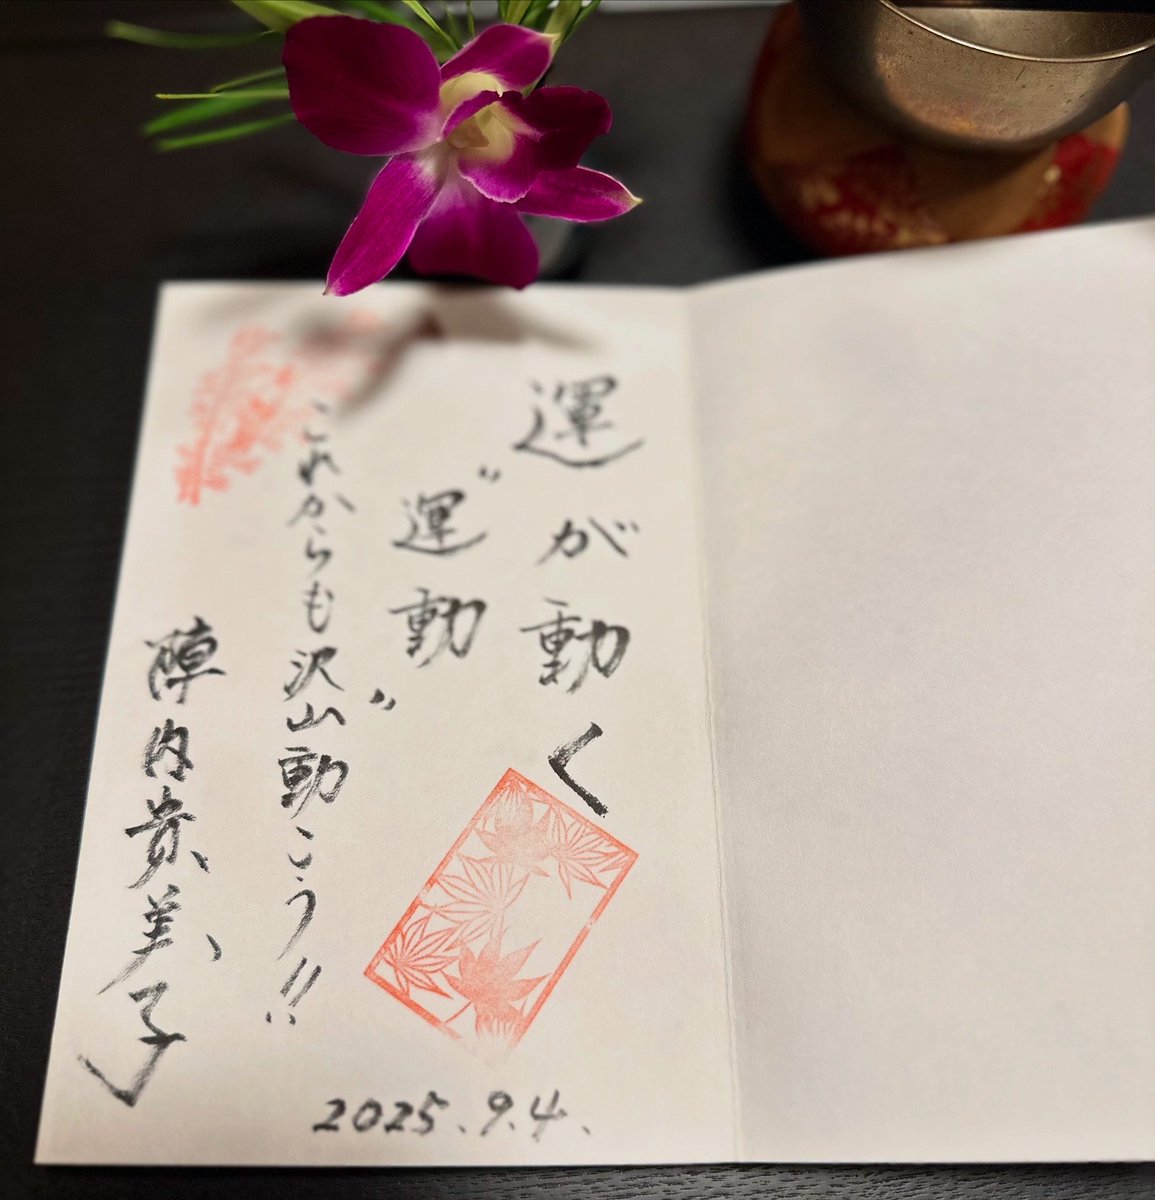 運が動く
"運動"
これからも沢山動こう!!
陣内貴美子
2025.9.4.